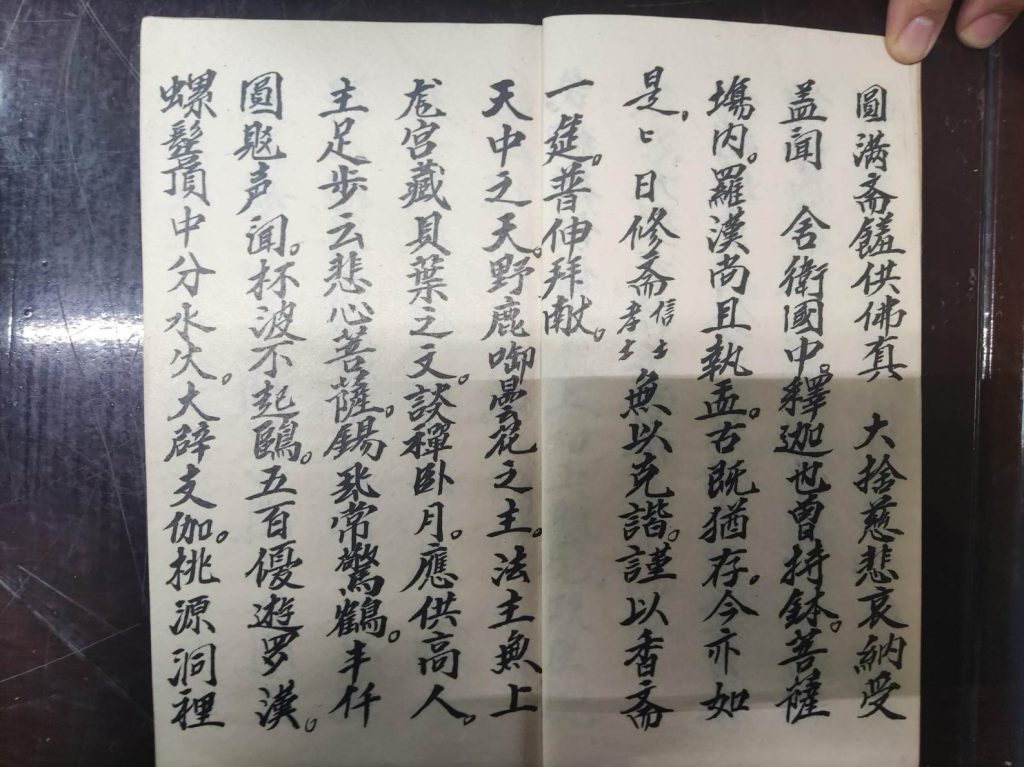 圓满斋饈供佛真　大捨慈悲哀納受
盖闻　舍衛國中。釋迦也曾持鉢。菩薩
塲内。羅漢尚且執盂。古既猶存。今亦如
是。㠯日修斋信士孝士魚以克諧。謹以香斋
一筵。普伸拜献。
天中之天。野鹿啣曇花之主。法主無上
龙宫藏貝葉之文。談禪卧月。應供高人。
主足步云悲心菩薩。錫飛常驚鶴。丰仟
圓彪声闻。杯波不起鷗。五百優遊罗漢。
螺髻頂中分水火。大辟支伽。挑源洞裡